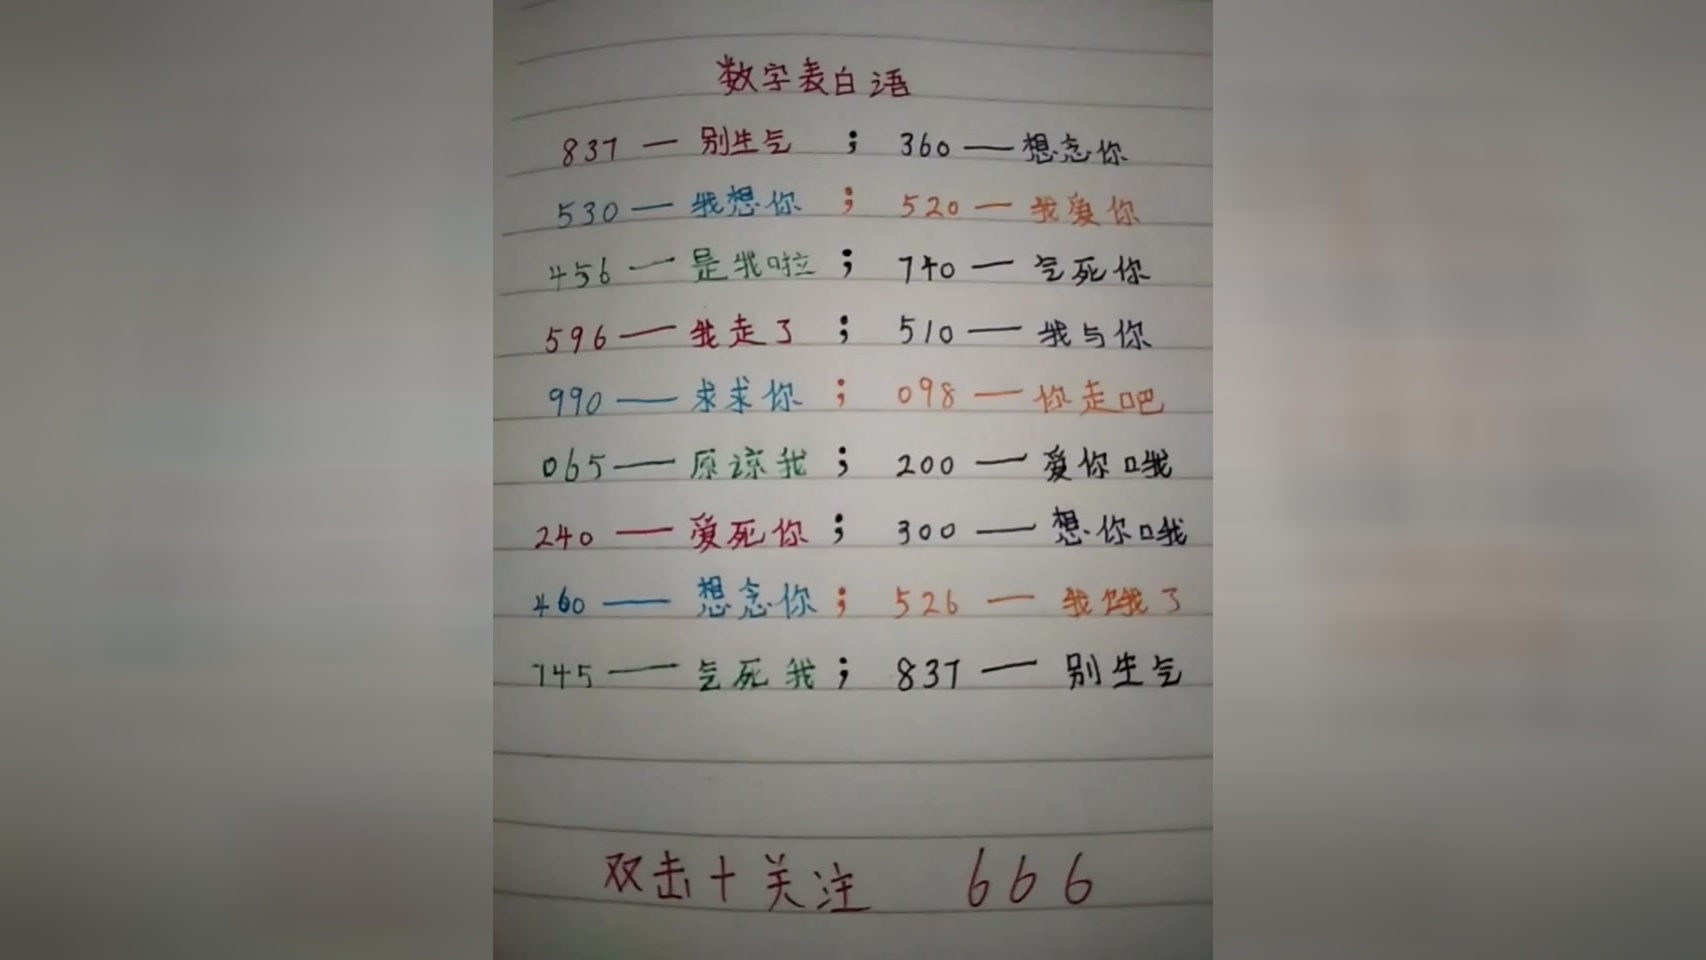 数字表白语
837 — 别生气 ; 360 — 想念你
530 — 我想你 ; 520 — 我爱你
456 — 是我啦 ; 740 — 气死你
596 — 我走了 ; 510 — 我与你
990 — 求求你 ; 098 — 你走吧
065 — 原谅我 ; 200 — 爱你哦
240 — 爱死你 ; 300 — 想你哦
460 — 想念你 ; 526 — 我饿了
745 — 气死我 ; 837 — 别生气
双击+关注 666